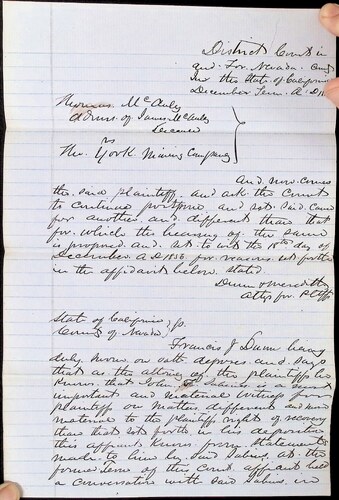 District Court in
and For Nevada
for the State of California
December Term A.D.
Thomas McAuly
admr. of James McAuly
Deceased
vs
The York Mining Company
And now comes
the said plaintiff and ask the Court
to continue postpone and set said cause
for another and different time than that
for which the hearing of the same
is proposed and set to wit the 18th day of
December A.D. for reasons set forth
in the affidavit below stated
Dunn & Meredith
Attys for Plffs
State of California
County of Nevada
Francis J Dunn being
duly sworn on oath deposes and says
that as the attorney of this plaintiff he
knows that John is a most
important and material witness for
plaintiff on matters different and more
material to the plaintiffs right of recovery
than that set forth in his deposition
this affiant knows from statements
made to him by said at the
former Term of this Court affiant held
a conversation with said in